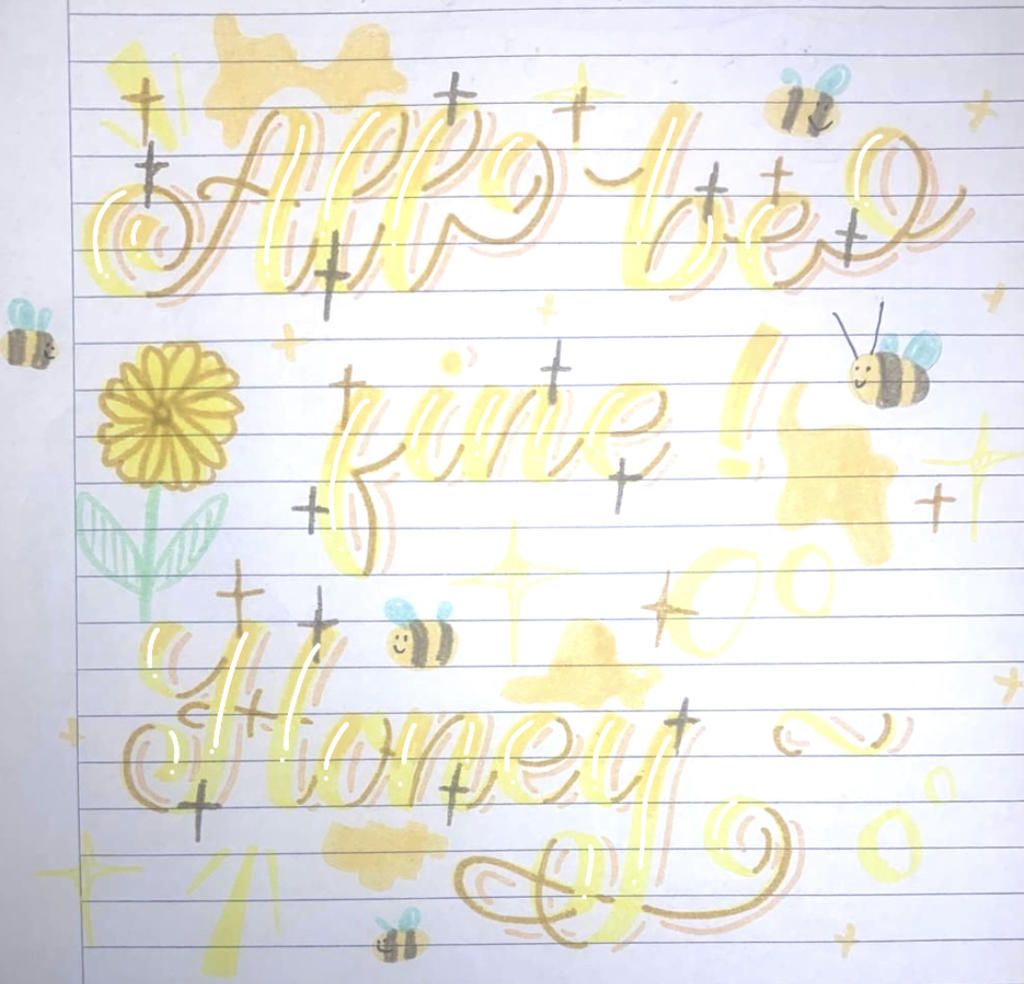 All be
fine!
Honey ~